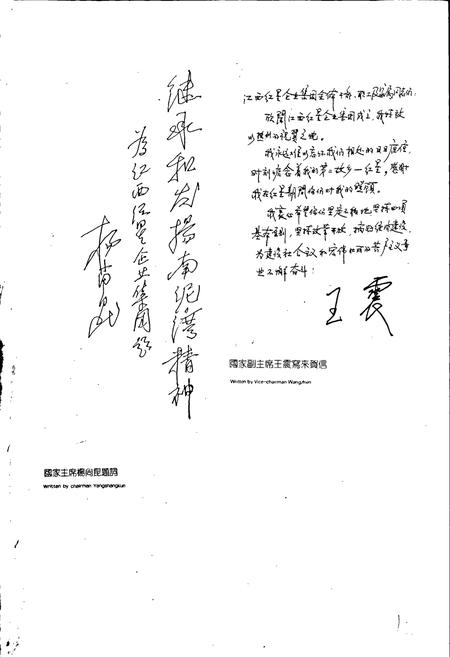 继承和发揚南泥湾精神
为江西红星企业集团题
杨尚昆
國家主席楊尚昆題詞
Written by chairman Yangshangkun
江西红星企业集团全体干部、职工及家属同志们:
欣闻江西红星企业集团成立,我
以热烈的祝贺之忱。
我永远难以忘怀我们相处的日日夜夜,
时刻怀念着我的第二故乡—红星,感谢
我在红星期间你们对我的照顾。
我衷心希望你们坚定不移地坚持四项
基本原则,坚持改革开放,搞好经济建设,
为建设社会主义和宏伟的共产主义事
业不懈奋斗!
王震
國家副主席王震寫来賀信
Written by Vice-chairman Wangzhen